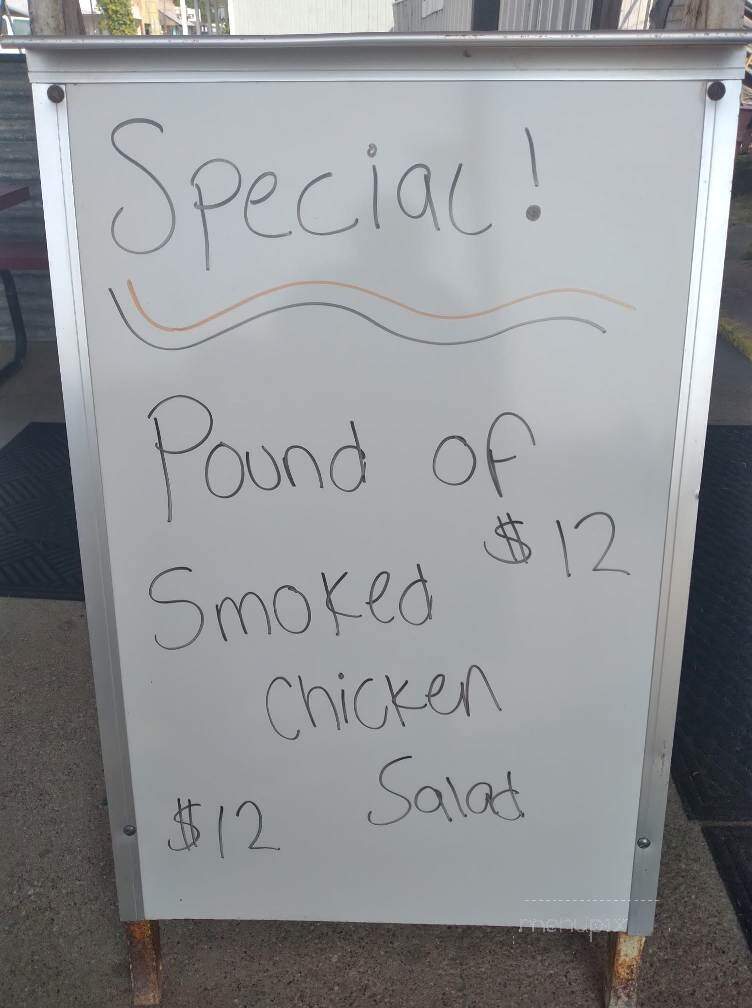 Special!
Pound of
$12
Smoked
Chicken
Salad
$12
menupix